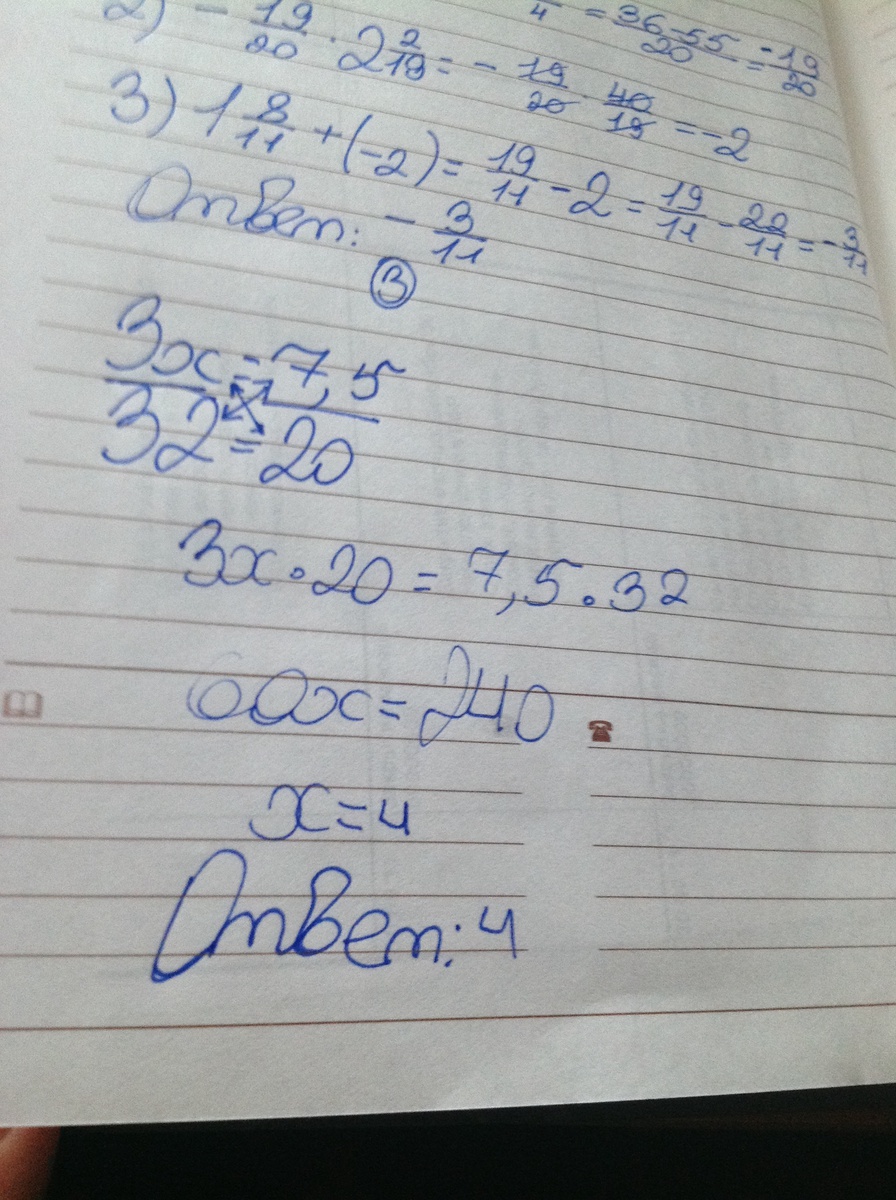 4 = 36-55/20 = -19/20
2) - 19/20 · 2 2/19 = - 19/20 · 40/19 = -2
3) 1 8/11 + (-2) = 19/11 - 2 = 19/11 - 22/11 = - 3/11
Ответ: - 3/11
3
3x = 7,5
32 = 20
3x · 20 = 7,5 · 32
60x = 240
x = 4
Ответ: 4